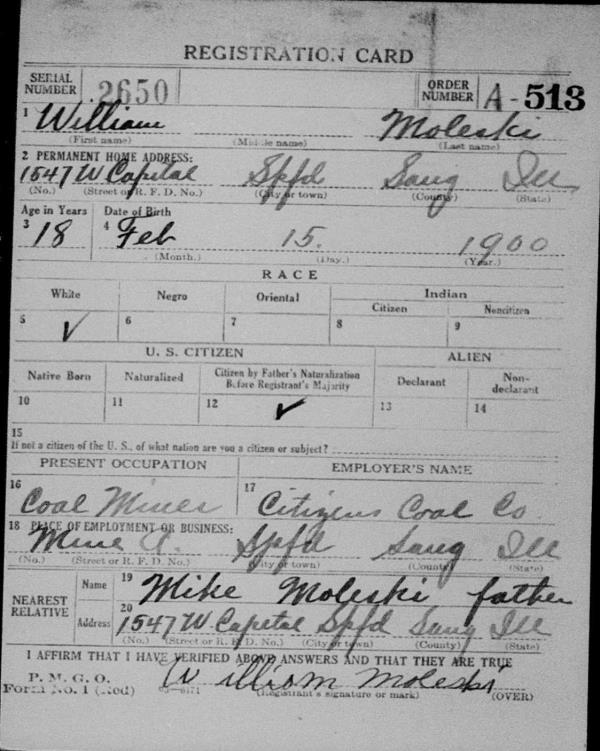 REGISTRATION CARD
SERIAL NUMBER 2650 ORDER NUMBER A-513
1 William Moleski
(First name) (Middle name) (Last name)
2 PERMANENT HOME ADDRESS:
1547 W Capital Spfd Sang Ill
(No.) (Street or R. F. D. No.) (City or town) (County) (State)
Age in Years Date of Birth
3 18 4 Feb 15. 1900
(Month.) (Day.) (Year.)
RACE
White Negro Oriental Indian
Citizen Noncitizen
5 ✓ 6 7 8 9
U. S. CITIZEN ALIEN
Native Born Naturalized Citizen by Father's Naturalization Before Registrant's Majority Declarant Non-declarant
10 11 12 ✓ 13 14
15
If not a citizen of the U. S., of what nation are you a citizen or subject?
PRESENT OCCUPATION EMPLOYER'S NAME
16 Coal Miner 17 Citizens Coal Co.
18 PLACE OF EMPLOYMENT OR BUSINESS:
Mine Spfd Sang Ill
(No.) (Street or R. F. D. No.) (City or town) (County) (State)
NEAREST RELATIVE Name 19 Mike Moleski father
Address 20 1547 W Capetal Spfd Sang Ill
(No.) (Street or R. F. D. No.) (City or town) (County) (State)
I AFFIRM THAT I HAVE VERIFIED ABOVE ANSWERS AND THAT THEY ARE TRUE
P. M. G. O.
Form No. 1 (Red) 03-6171 William Moleski
(Registrant's signature or mark) (OVER)